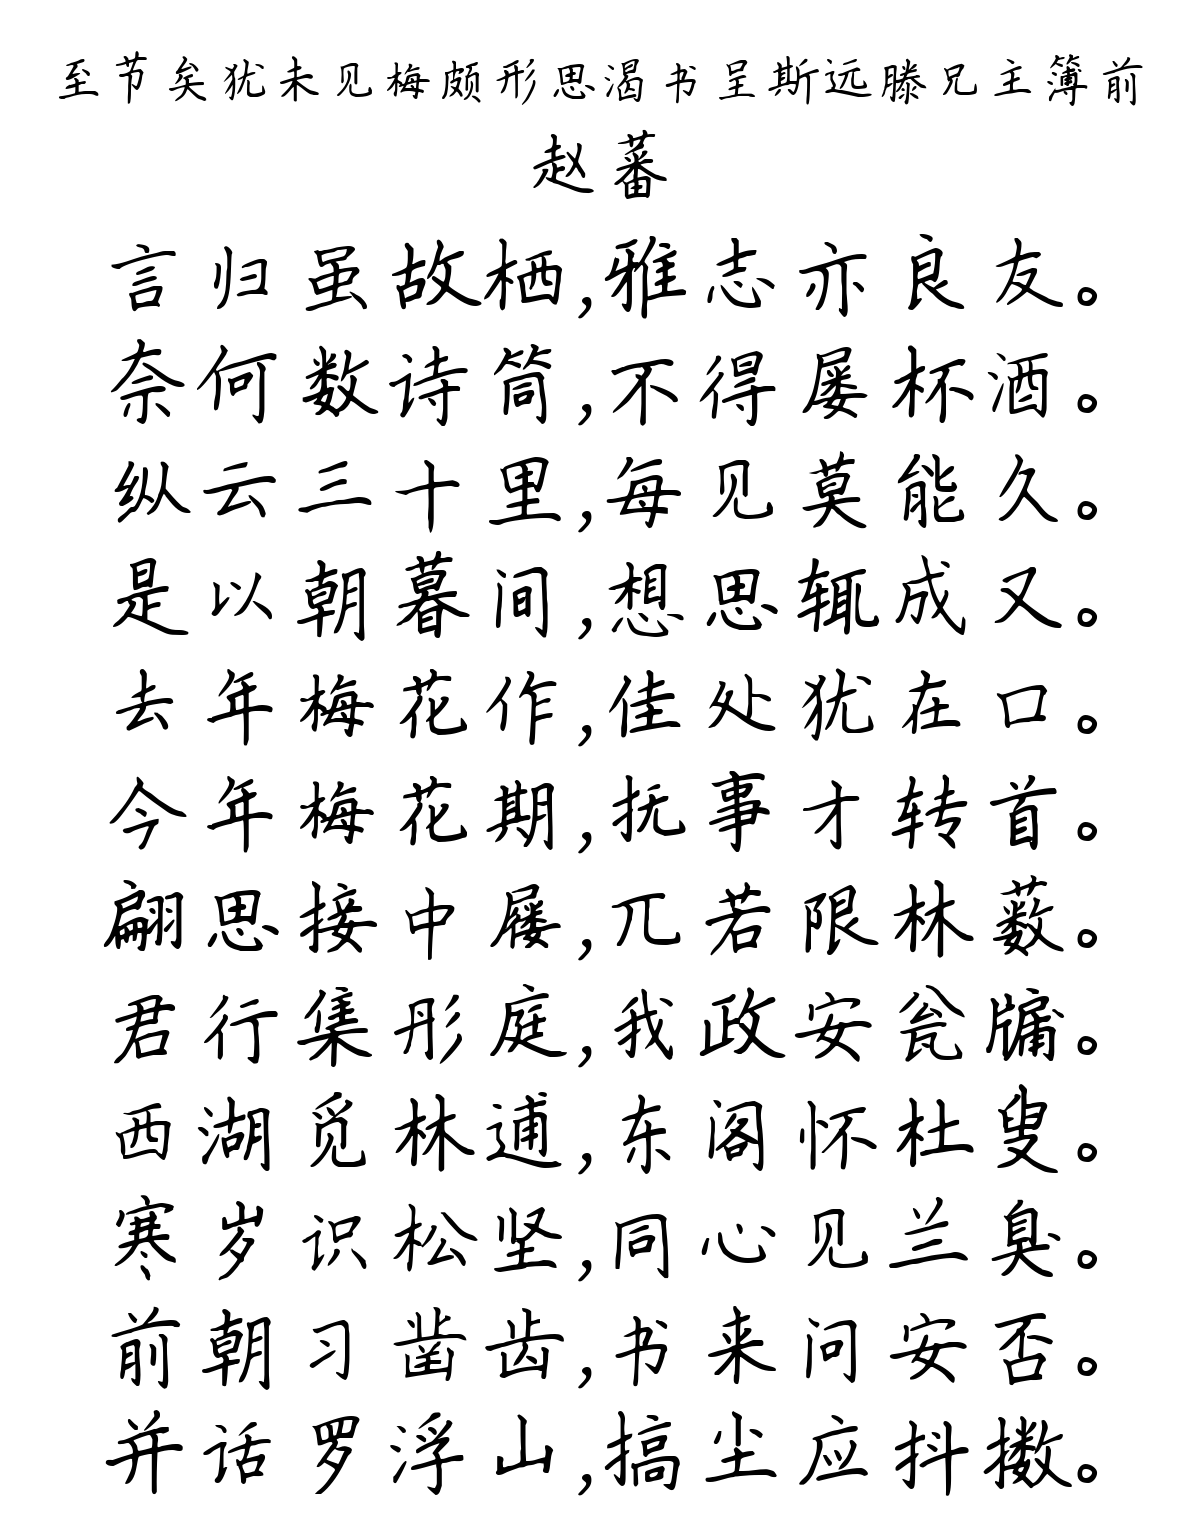 至节矣犹未见梅颇形思渴书呈斯远滕兄主簿前
赵蕃
言归虽故栖,雅志亦良友。
奈何数诗筒,不得屡杯酒。
纵云三十里,每见莫能久。
是以朝暮间,想思辄成又。
去年梅花作,佳处犹在口。
今年梅花期,抚事才转首。
翩思接中屦,兀若限林薮。
君行集彤庭,我政安瓮牖。
西湖觅林逋,东阁怀杜叟。
寒岁识松坚,同心见兰臭。
前朝习凿齿,书来问安否。
并话罗浮山,搞尘应抖擞。